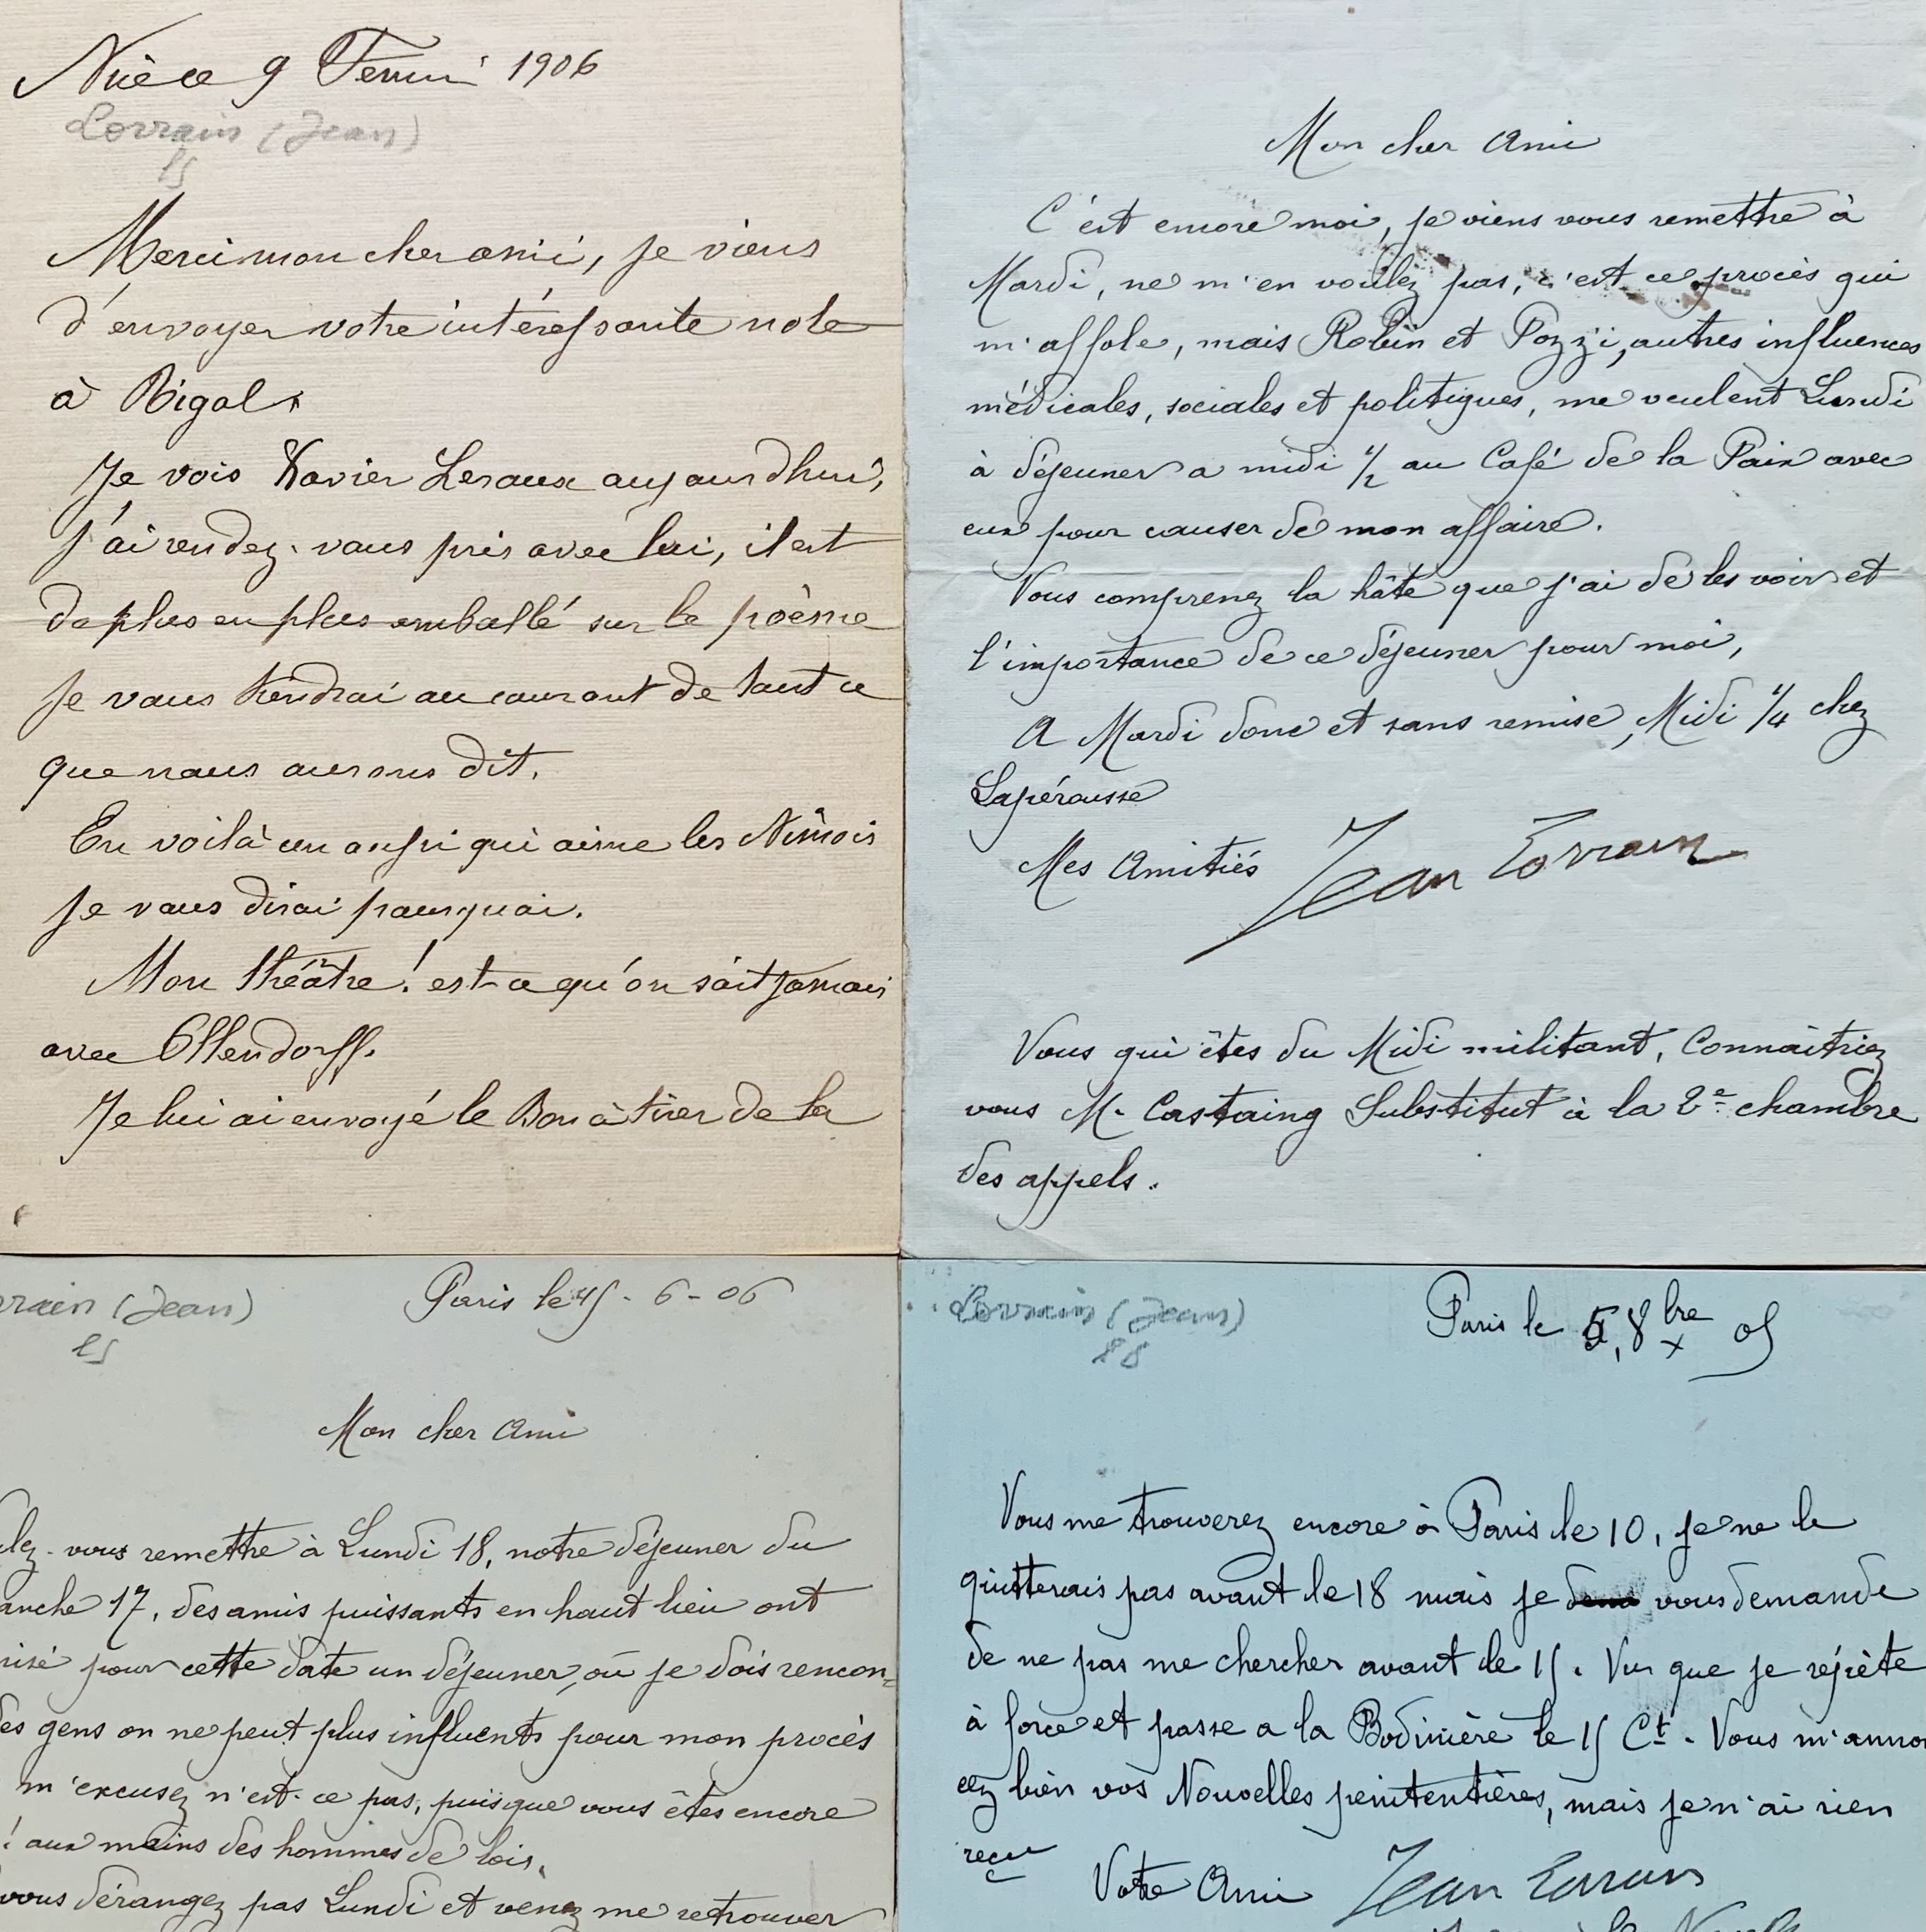 Nice 9 Fevrier 1906
Lorrain (Jean)
ls
Merci mon cher ami, je viens
d'envoyer votre intéressante note
à Rigal
Je vois Xavier Leroux aujourdhui,
j'ai rendez-vous pris avec lui, il est
de plus en plus emballé sur le poème
je vous tiendrai au courant de tout ce
que nous aurons dit.
En voilà un aussi qui aime les Nîmois
je vous dirai pourquoi.
Mon théâtre! est-ce qu'on sait jamais
avec Ollendorff.
Je lui ai envoyé le Bon à tirer de la
Mon cher Ami
C'est encore moi, je viens vous remettre à
Mardi, ne m'en voulez pas, c'est ce procès qui
m'affole, mais Robin et Pozzi, autres influences
médicales, sociales et politiques, me veulent Lundi
à déjeuner a midi 1/2 au Café de la Paix avec
eux pour causer de mon affaire.
Vous comprenez la hâte que j'ai de les voir et
l'importance de ce déjeuner pour moi,
A Mardi donc et sans remise, Midi 1/4 chez
Lapérousse
Mes Amitiés Jean Lorrain
Vous qui êtes du Midi militant, Connaitriez
vous M. Castaing Substitut à la 2e chambre
des appels.
rrain (Jean)
ls
Paris le 15-6-06
Mon cher Ami
lez-vous remettre à Lundi 18, notre déjeuner du
anche 17, des amis puissants en haut lieu ont
nisé pour cette date un déjeuner, où je dois rencon-
des gens on ne peut plus influents pour mon procès
m'excusez n'est-ce pas, puisque vous êtes encore
! aux mains des hommes de lois.
vous dérangez pas Lundi et venez me retrouver
Lorrain (Jean)
Paris le 5, 8bre 05
Vous me trouverez encore à Paris le 10, je ne le
quitterais pas avant le 18 mais je vous demande
de ne pas me chercher avant le 15. Vu que je répète
à force et passe a la Bodinière le 15 Ct. Vous m'annon
cez bien vos Nouvelles penitentières, mais je n'ai rien
reçu
Votre Ami Jean Lorrain